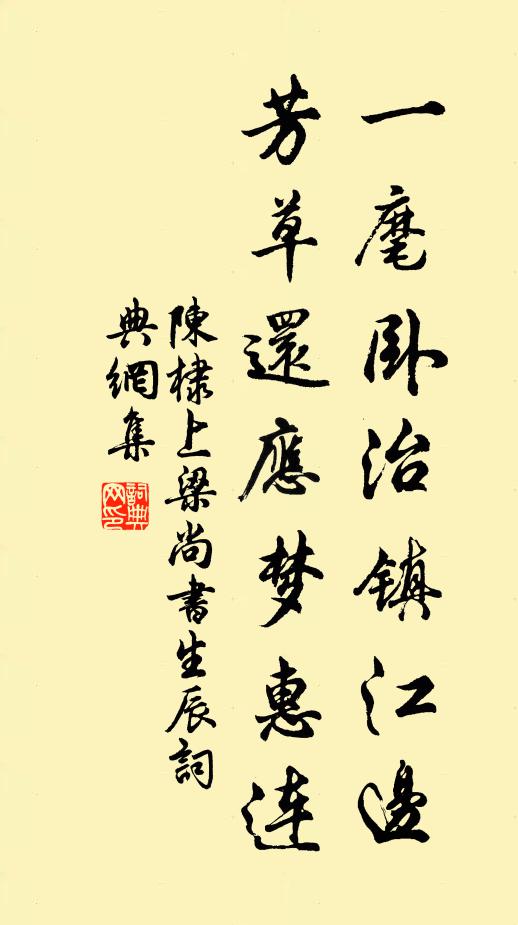 一麾卧治鎮江邊
芳草還應梦惠連
陳棣上梁尚書生辰詞
典網集
詞典
网印